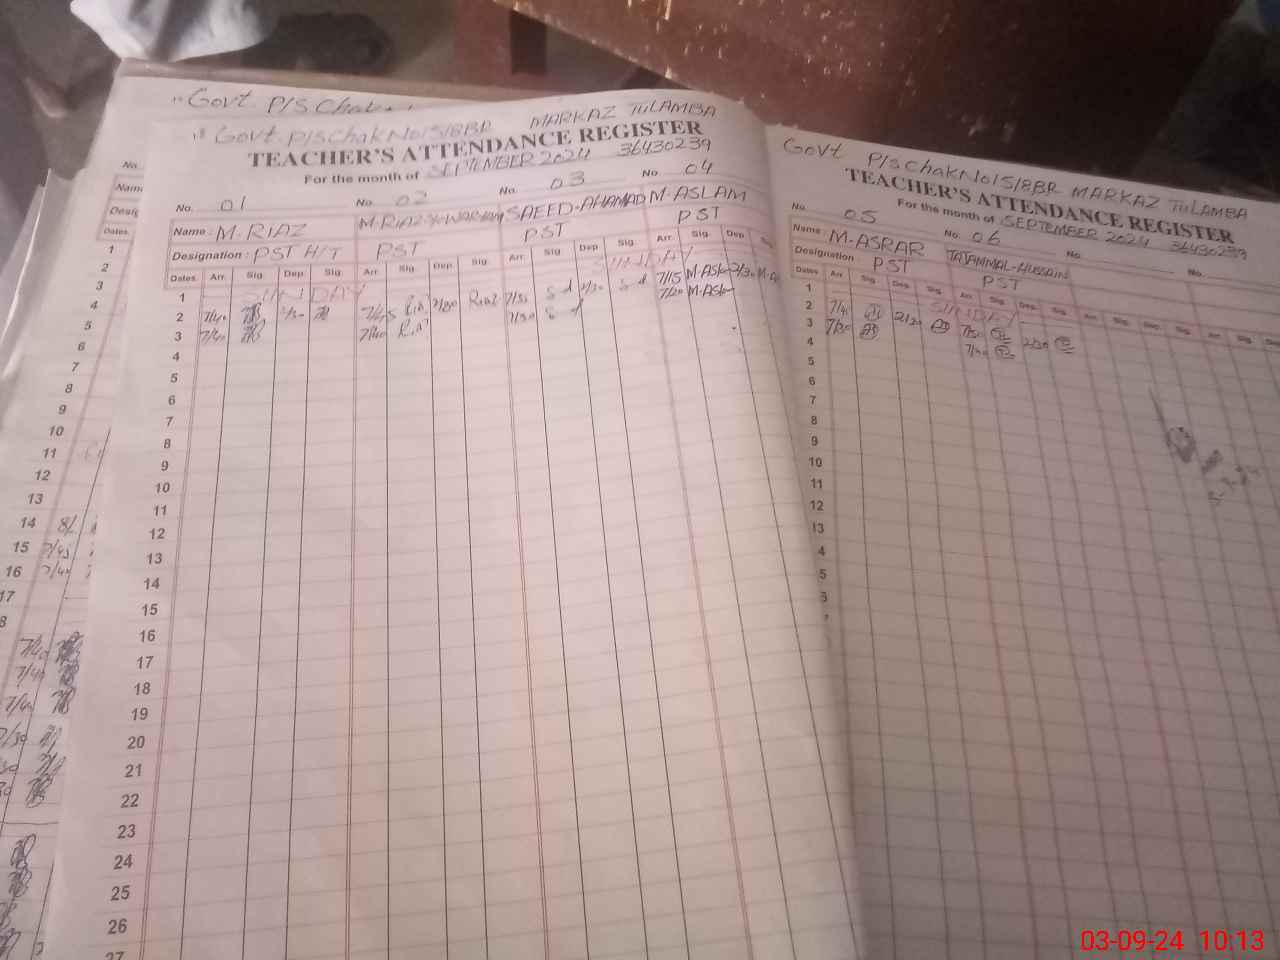 Govt. P/S Chak
Govt. P/S Chak No 15/8BR MARKAZ TULAMBA
TEACHER'S ATTENDANCE REGISTER
For the month of SEPTEMBER 2024 36430239
No. 01 No. 02 No. 03 No. 04
Name: M.RIAZ M.RIAZ SAEED-AHAMAD M-ASLAM
Designation: PST H/T PST PST PST
Dates Arr. Sig. Dep. Sig. Arr. Sig. Dep. Sig. Arr. Sig. Dep. Sig. Arr. Sig. Dep
1 SUNDAY SUNDAY
2 7/40 2/30 7/45 Riaz 2/30 Riaz 7/30 2/30 7/15 M-Aslam 2/30
3 7/40 7/40 Riaz 7/30 7/20 M-Aslam
4
5
6
7
8
9
10
11
12
13
14
15
16
17
18
19
20
21
22
23
24
25
26
27
Govt P/S Chak No 15/8BR MARKAZ TULAMBA
TEACHER'S ATTENDANCE REGISTER
For the month of SEPTEMBER 2024 36430239
No. 05 No. 06 No. No.
Name: M-ASRAR TAJAMMAL-HUSSAIN
Designation PST PST
Dates Arr. Sig. Dep. Sig. Arr. Sig. Dep. Sig. Arr. Sig. Dep. Sig. Arr. Sig.
1 SUNDAY
2 7/45 2/30 7/30 2/30
3 7/30 7/40
4
5
6
7
8
9
10
11
12
13
4
5
6
No.
Name
Desig
Dates
1
2
3
4
5
6
7
8
9
10
11
12
13
14
15 7/45
16 7/40
17
8
7/40
7/40
7/40
7/30
03-09-24 10:13